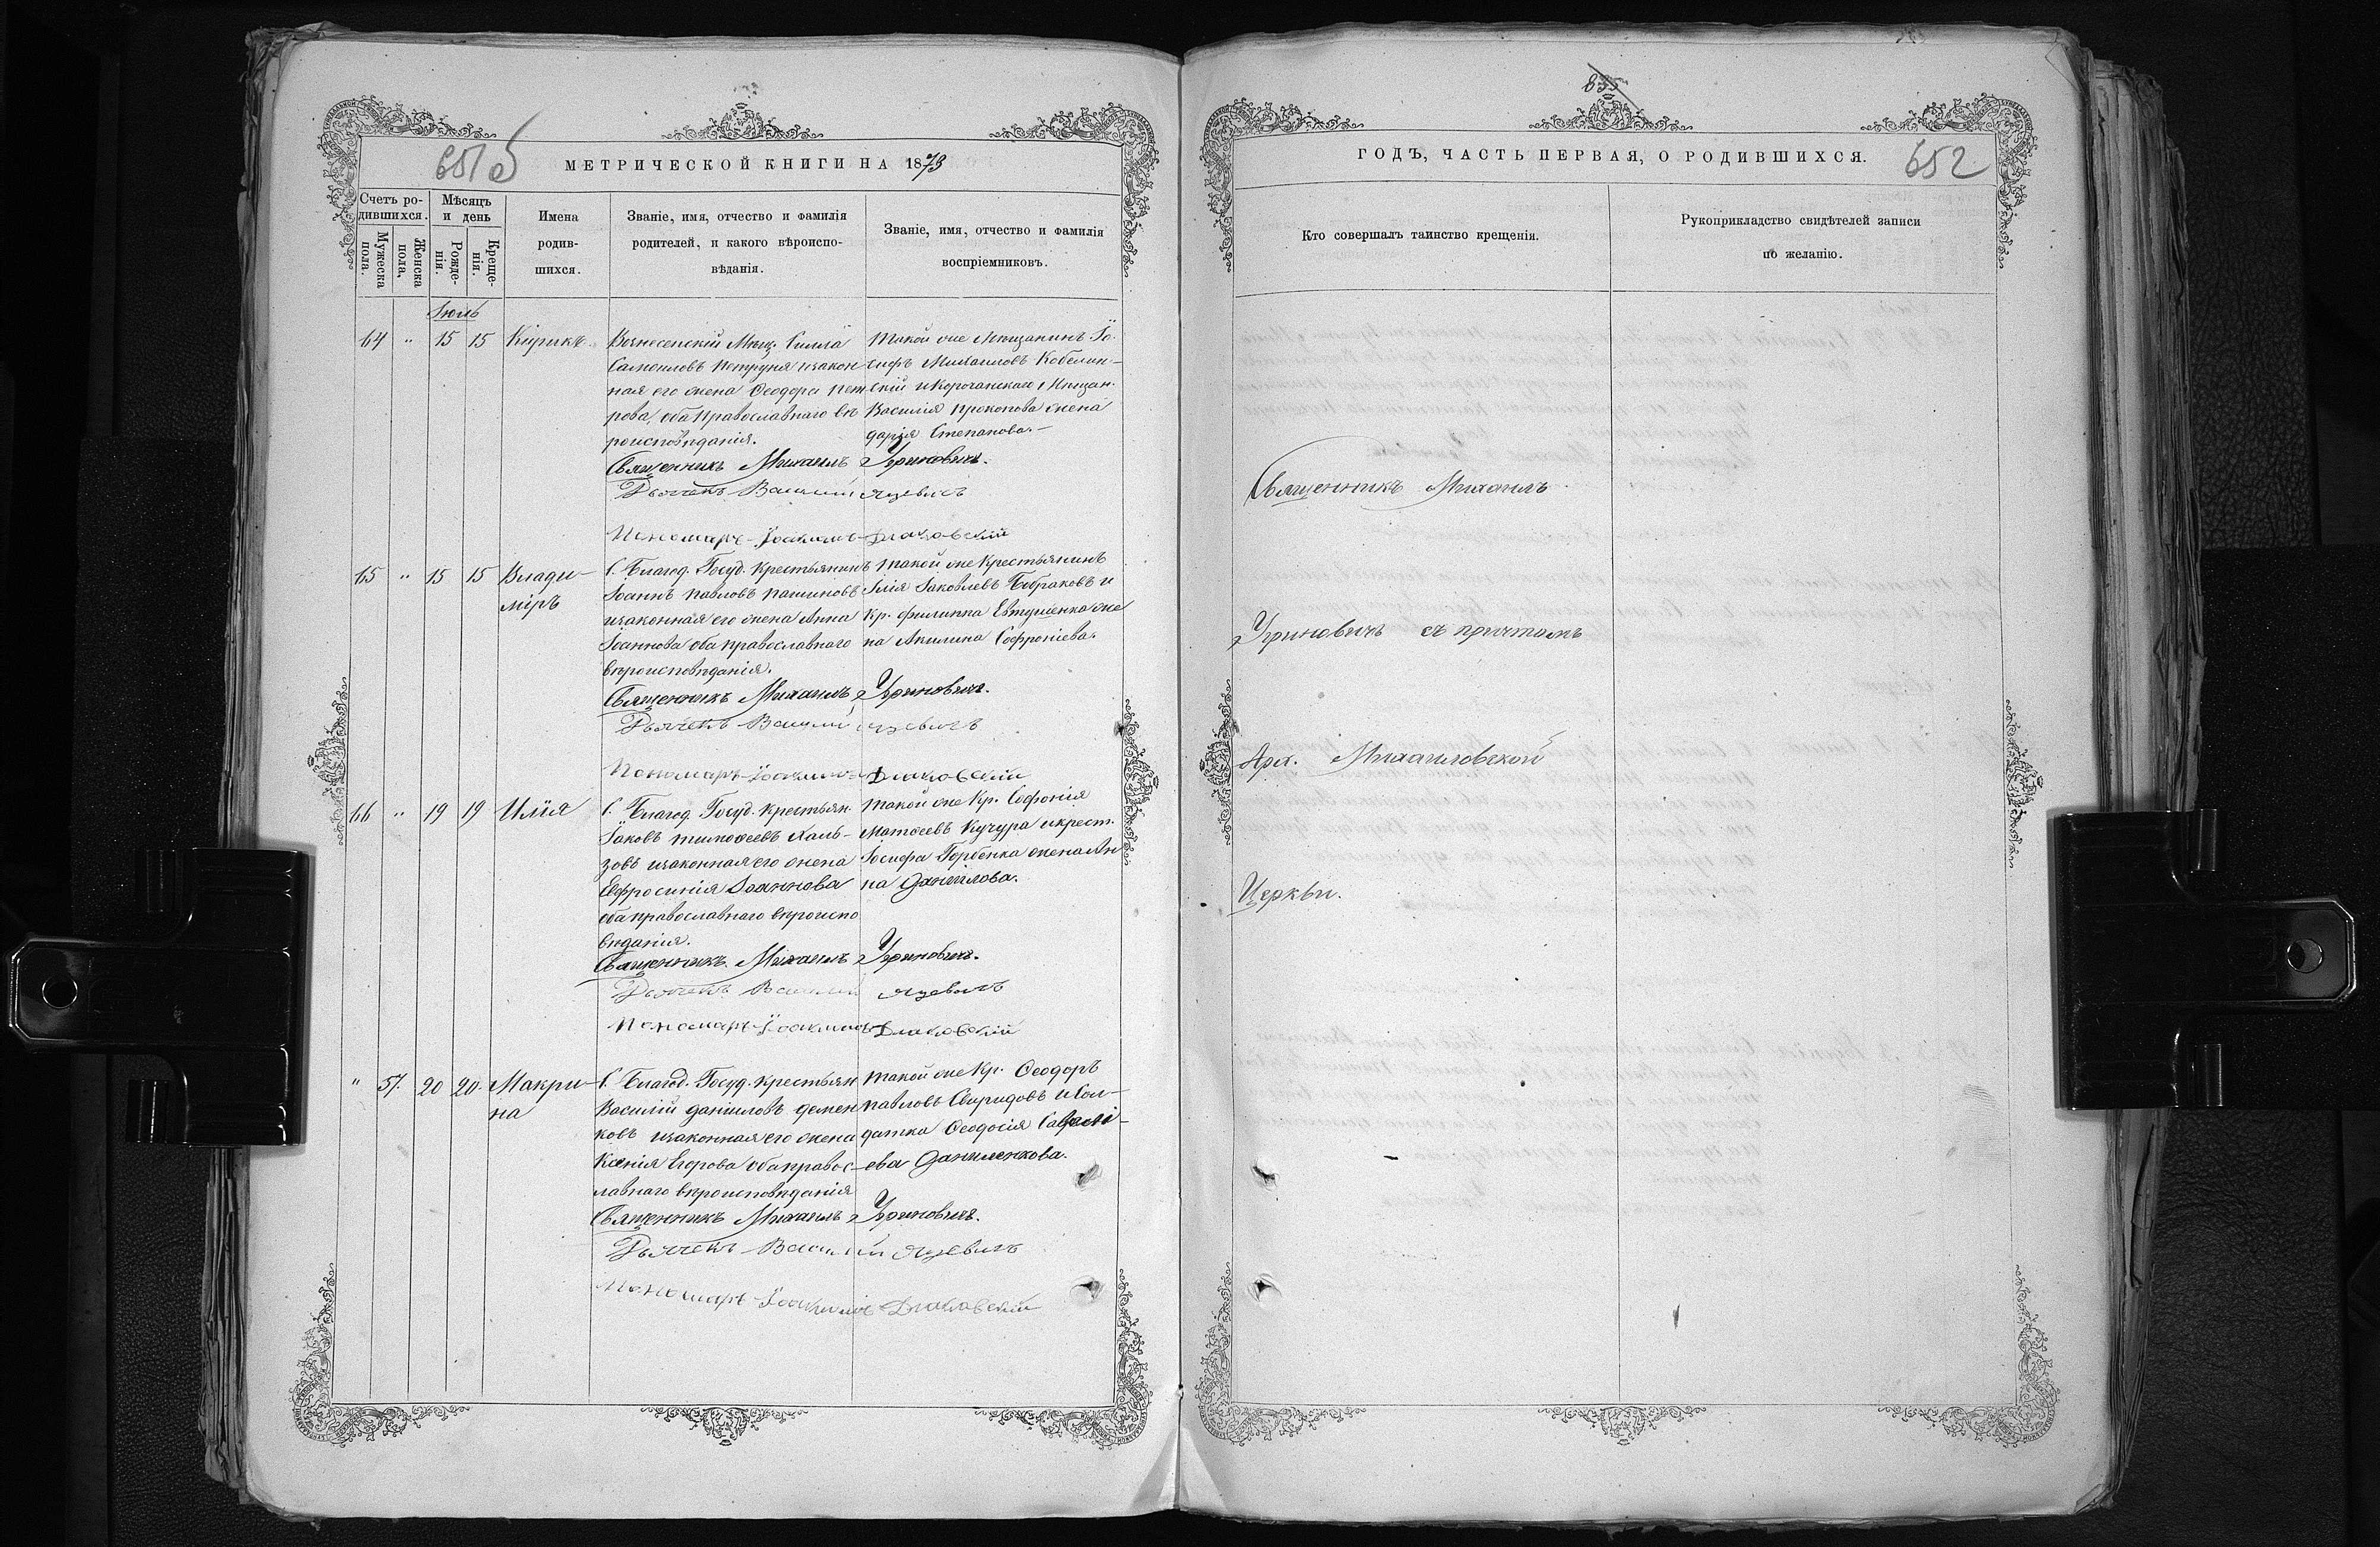 651 об
МЕТРИЧЕСКОЙ КНИГИ НА 1873
Счетъ ро-
дившихся.
Мужеска
пола.
Женска
пола,
Мѣсяцъ
и день
Рожде-
нія.
Креще-
нія.
Имена
родив-
шихся.
Званіе, имя, отчество и фамилія
родителей, и какого вѣроиспо-
вѣданія.
Званіе, имя, отчество и фамилія
воспріемниковъ.
Іюль
64 " 15 15 Кирикъ
Вознесенскій Мѣщ. Силла
Самоиловъ Петруня изакон-
ная его жена Ѳеодора Пет
рова, оба православнаго вѣ
роисповѣданія.
Такой же Мѣщанинъ Іо-
сифъ Михаиловъ Кобелин-
скій и Корочанскаго Мѣщан.
Василія Прокопова жена
Дарія Степанова.-
Священникъ Михаилъ Угриновичъ.
Дьячекъ Василій Яцевичъ
Пономарь Іоакимъ Длаковскій
65 " 15 15 Влади-
міръ
С. Благод. Госуд. Крестьянинъ
Іоаннъ Павловъ Пашиновъ
изаконная его жена Анна
Іоаннова оба православнаго
вѣроисповѣданія.
Такой же Крестьянинъ
Илія Іаковлевъ Бобраковъ и
Кр. Филиппа Евтушенка же
на Акилина Софроніева.
Священникъ Михаилъ Угриновичъ.
Дьячекъ Василій Яцевичъ
Пономарь Іоакимъ Длаковскій
66 " 19 19 Илія
С. Благод. Госуд. Крестьян.
Іаковъ Тимоѳеевъ Халь-
зовъ изаконная его жена
Евфросинія Іоаннова
оба православнаго вѣроиспо
вѣданія.
Такой же Кр. Софонія
Матѳеевъ Кучура и крест.
Іосифа Горбенка жена Ан
на Даніилова.
Священникъ Михаилъ Угриновичъ.
Дьячекъ Василій Яцевичъ
Пономарь Іоакимъ Длаковскій
" 57. 20 20. Макри-
на
С. Благод. Госуд. Крестьян
Василій Даніиловъ Демен
ковъ изаконная его жена
Ксенія Егорова оба правос-
лавнаго вѣроисповѣданія
Такой же Кр. Ѳеодоръ
Павловъ Свиридовъ и Сол-
датка Ѳеодосія Савелі-
ева Даниленкова.
Священникъ Михаилъ Угриновичъ.
Дьячекъ Василій Яцевичъ
Пономарь Іоакимъ Длаковскій
835
ГОДЪ, ЧАСТЬ ПЕРВАЯ, О РОДИВШИХСЯ.
652
Кто совершалъ таинство крещенія.
Рукоприкладство свидѣтелей записи
по желанію.
Священникъ Михаилъ
Угриновичъ съ причтомъ
Арх. Михаиловской
Церкви.